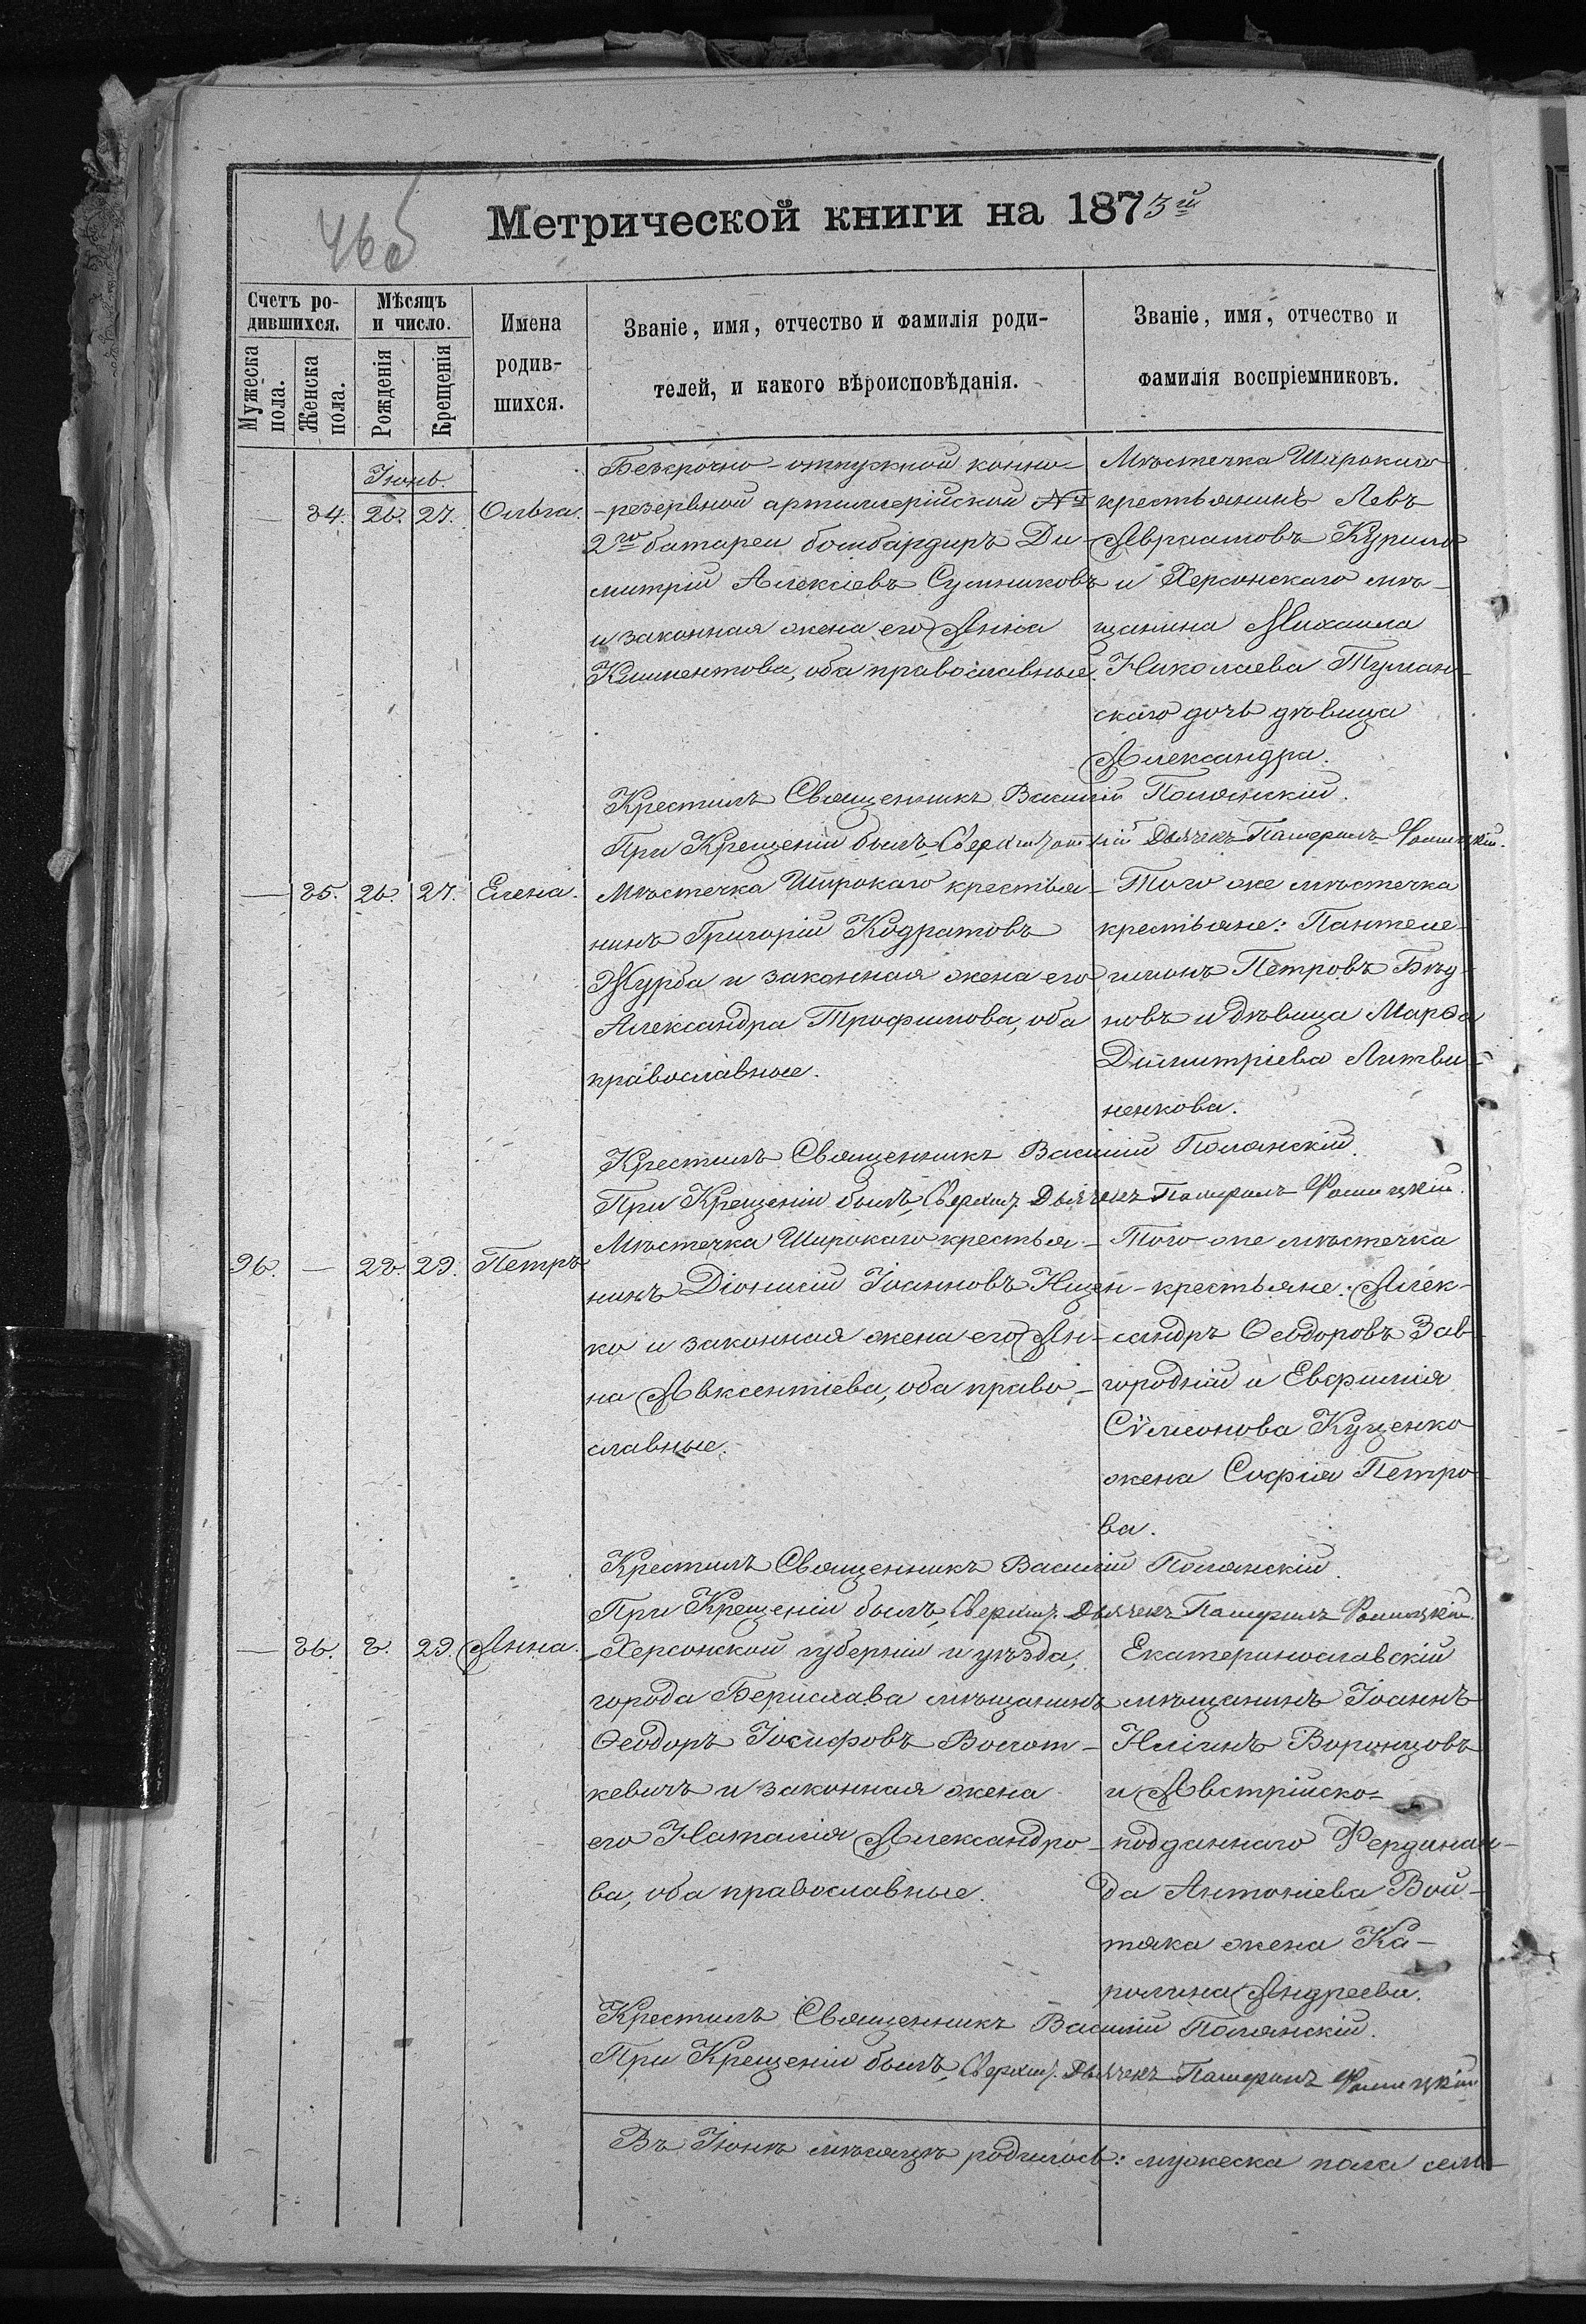 46об
Метрической книги на 1873й
Счетъ ро-
дившихся.
Мѣсяцъ
и число.
Мужеска
пола.
Женска
пола.
Рожденія
Крещенія
Имена
родив-
шихся.
Званіе, имя, отчество и фамилія роди-
телей, и какого вѣроисповѣданія.
Званіе, имя, отчество и
фамилія воспріемниковъ.
Іюнь.
— 84. 26. 27. Ольга.
Безсрочно-отпускной конно
-резервной артиллерійской №
2го батареи бомбардиръ Ди-
митрій Алексіевъ Сульниковъ
и законная жена его Анна
Климентова, оба православные.
Мѣстечка Широкаго
крестьянинъ Левъ
Авраамовъ Курило
и Херсонскаго мѣ-
щанина Михаила
Николаева Туман-
скаго дочь дѣвица
Александра.
Крестилъ Священникъ Василій Полянскій.
При Крещеніи былъ Сверхштатній Дьячекъ
— 85. 26. 27. Елена.
Мѣстечка Широкаго крестья-
нинъ Григорій Кодратовъ
Журба и законная жена его
Александра Трофимова, оба
православные.
Того же мѣстечка
крестьяне: Пантеле-
имонъ Петровъ Бѣд-
новъ и дѣвица Марѳа
Димитріева Литви-
ненкова.
Крестилъ Священникъ Василій Полянскій.
При Крещеніи былъ Сверхшт. Дьячекъ
96. — 28. 29. Петръ
Мѣстечка Широкаго крестья-
нинъ Діонисій Іоанновъ Нищен-
ко и законная жена его Ан-
на Авксентіева, оба право-
славные.
Того же мѣстечка
крестьяне: Алек-
сандръ Ѳеодоровъ Зав-
городній и Евфимія
Сѵмеонова Куценко
жена Софія Петро-
ва.
Крестилъ Священникъ Василій Полянскій.
При Крещеніи былъ Сверхшт. Дьячекъ
— 86. 8. 29. Анна.
Херсонской губерніи и уѣзда,
города Берислава мѣщанинъ
Ѳеодоръ Іосифовъ Волот-
кевичъ и законная жена
его Наталія Александро-
ва, оба православные.
Екатеринославскій
мѣщанинъ Іоаннъ
Иліинъ Воронцовъ
и Австрійско-
подданнаго Фердинан-
да Антоніева Вой-
тяка жена Ка-
ролина Андреева.
Крестилъ Священникъ Василій Полянскій.
При Крещеніи былъ Сверхшт. Дьячекъ
Въ Іюнѣ мѣсяцѣ родилось: мужеска пола сем-